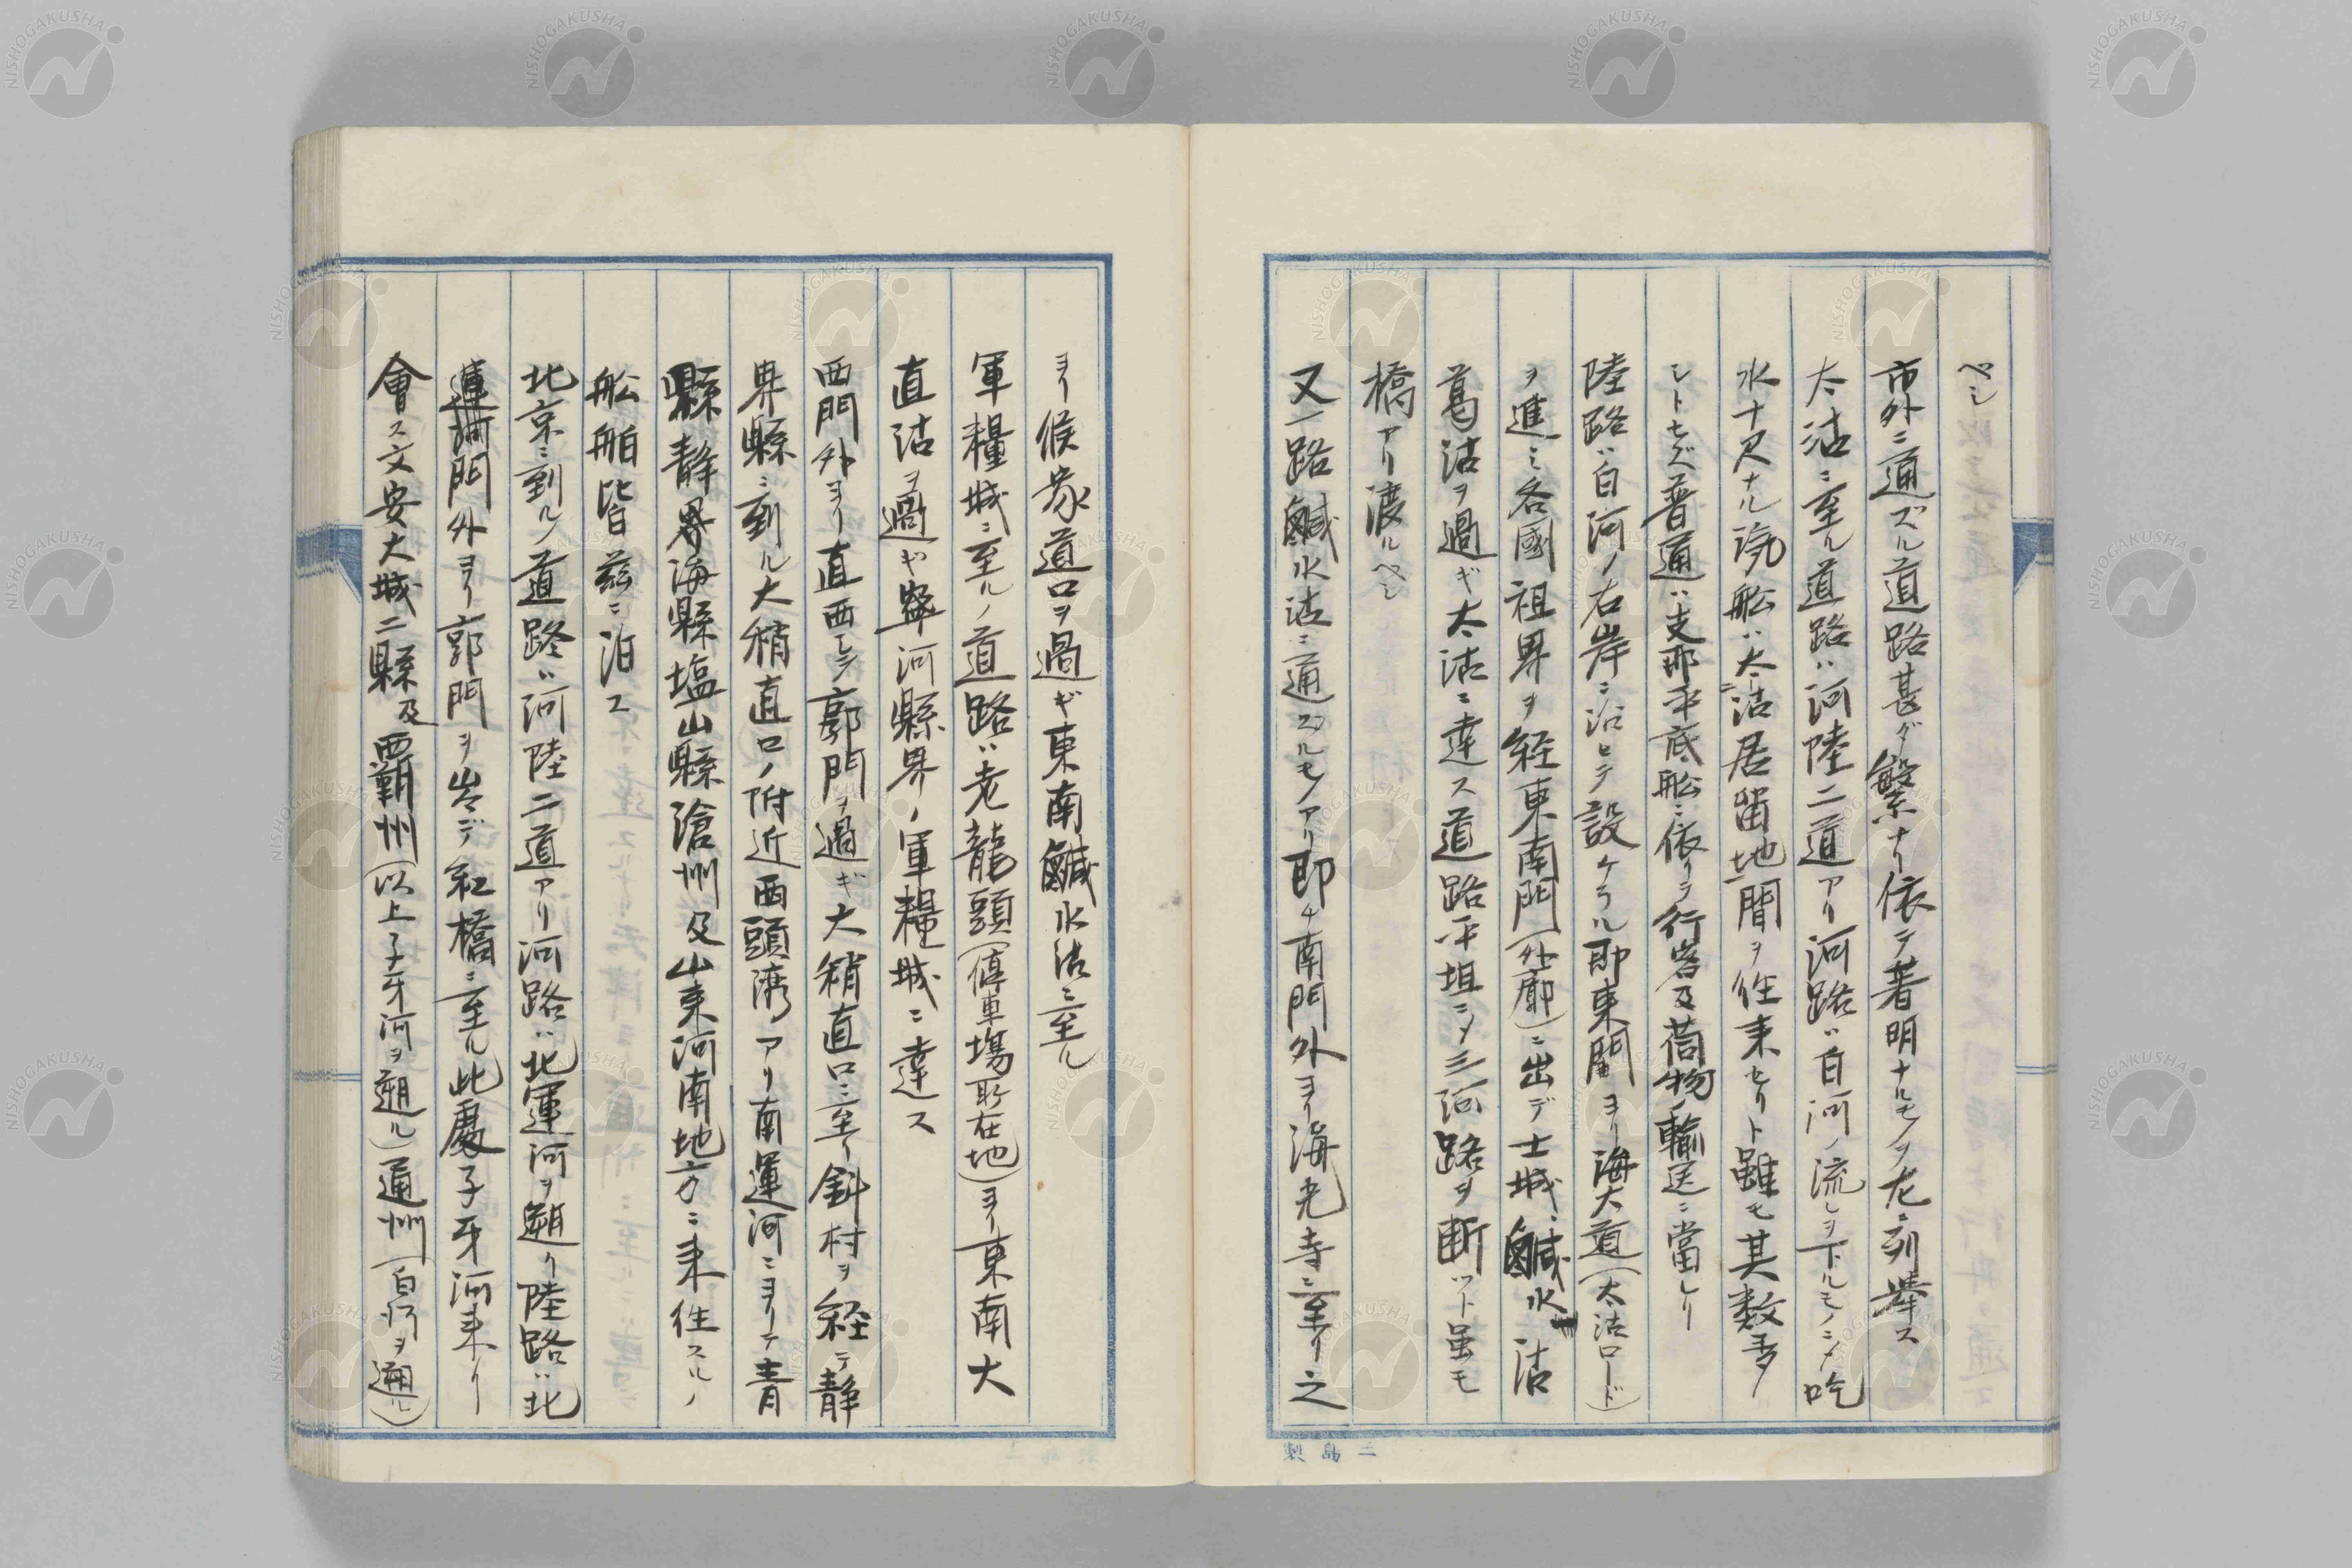 ベシ
市外ニ通ズル道路甚ダ繁ナリ依テ著明ナルモノヲ左ニ列挙ス
太沽ニ至ル道路ハ河陸二道アリ河路ハ白河ノ流レヲ下ルモノニメ吃
水十尺ナル汽舩ハ太沽居留地間ヲ往来セリト雖モ其数多
シトセズ普通ハ支那平底舩ニ依リテ行客及荷物ノ輸送ニ當レリ
陸路ハ白河ノ右岸ニ沿ヒテ設ケラル即東門ヨリ海大道(太沽ロード)
ヲ進ミ各國租界ヲ経東南門(外廓)ニ出デ土城、鹹水沽
葛沽ヲ過ギ太沽ニ達ス道路平坦ニメ三河路ヲ断ツト虽モ
橋アリ渡ルベシ
又一路鹹水沽ニ通ズルモノアリ即チ南門外ヨリ海光寺ニ至リ之
ヨリ候家道口ヲ過ギ東南鹹水沽ニ至ル
軍糧城ニ至ルノ道路ハ老龍頭(停車場所在地)ヨリ東南大
直沽ヲ過ギ寧河縣界ノ軍糧城ニ達ス
西門外ヨリ直西シテ廓門ヲ過ギ大稍直口ニ至リ斜村ヲ経テ静
界縣ニ到ル大稍直口ノ附近西頭湾アリ南運河ニヨリテ青
縣静界海縣塩山縣滄州及山東河南地方ニ来往スルノ
舩舶皆茲ニ泊ス
北京ニ到ルノ道路ハ河陸二道アリ河路ハ北運河ヲ遡リ陸路ハ北
門外ヨリ郭門ヲ出デ紅橋ニ至ル此處子牙河来リ
會ス文安大城二縣及覇州(以上子牙河ヲ遡ル)通州(白河ヲ遡ル)
二島製
NISHOGAKUSHA